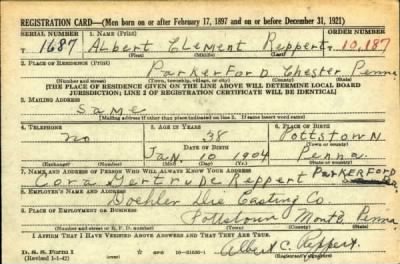 REGISTRATION CARD—(Men born on or after February 17, 1897 and on or before December 31, 1921)
SERIAL NUMBER 1. NAME (Print) ORDER NUMBER
T 1687 Albert Clement Reppert T 10,187
(First) (Middle) (Last)
2. PLACE OF RESIDENCE (Print)
Parkerford Chester Penna
(Number and street) (Town, township, village, or city) (County) (State)
[THE PLACE OF RESIDENCE GIVEN ON THE LINE ABOVE WILL DETERMINE LOCAL BOARD
JURISDICTION; LINE 2 OF REGISTRATION CERTIFICATE WILL BE IDENTICAL]
3. MAILING ADDRESS
Same
[Mailing address if other than place indicated on line 2. If same insert word same]
4. TELEPHONE 5. AGE IN YEARS 6. PLACE OF BIRTH
no 38 Pottstown
DATE OF BIRTH (Town or county)
Jan. 10 1904 Penna.
(Exchange) (Number) (Mo.) (Day) (Yr.) (State or country)
7. NAME AND ADDRESS OF PERSON WHO WILL ALWAYS KNOW YOUR ADDRESS
Cora Gertrude Reppert Parkerford
8. EMPLOYER'S NAME AND ADDRESS
Doehler Die Casting Co.
9. PLACE OF EMPLOYMENT OR BUSINESS
Pottstown Mont. Penna.
(Number and street or R. F. D. number) (Town) (County) (State)
I AFFIRM THAT I HAVE VERIFIED ABOVE ANSWERS AND THAT THEY ARE TRUE.
D. S. S. Form 1
(Revised 1-1-42) Albert C. Reppert
(Registrant's signature)